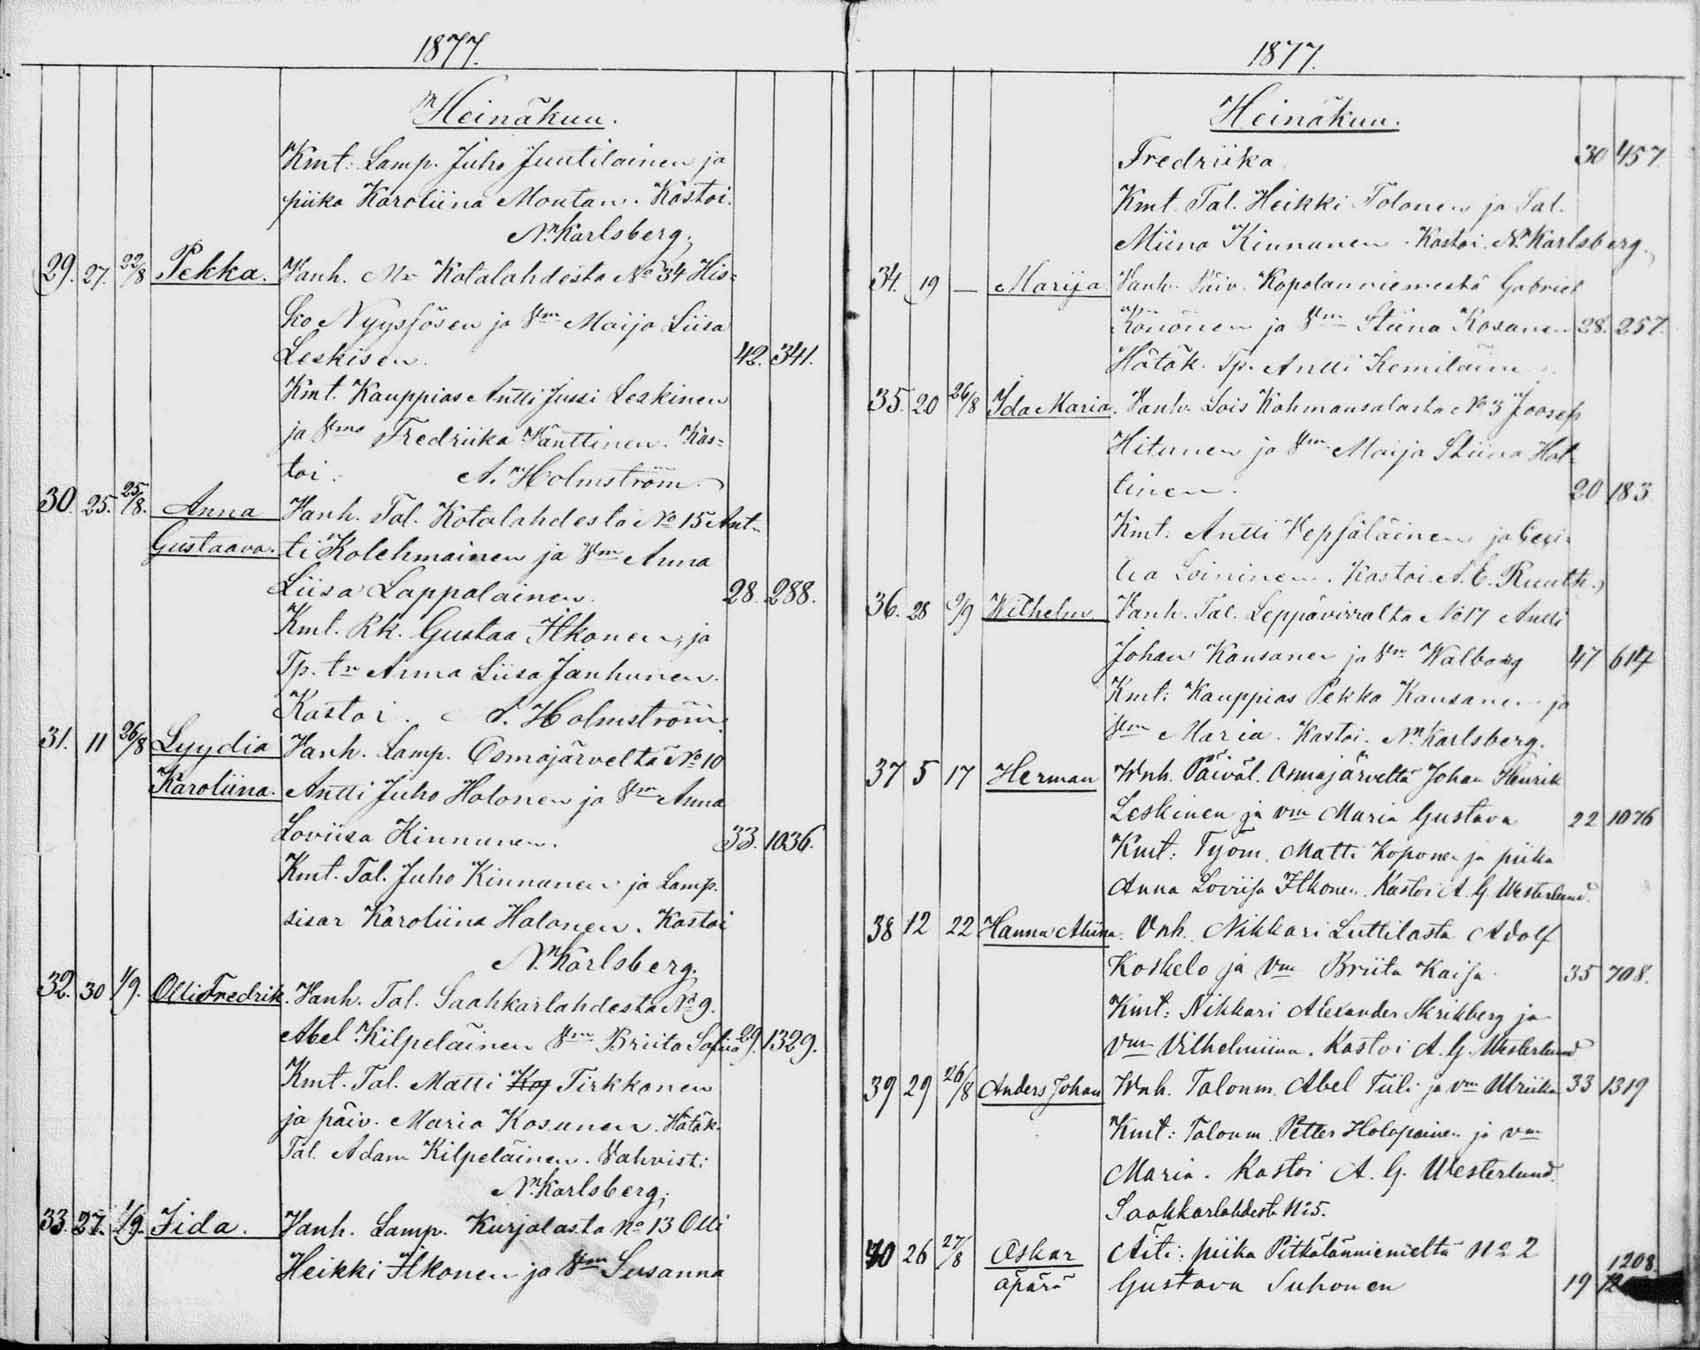 1877.
Heinäkuu.
Kmt: Lamp. Juho Juutilainen ja
piika Karoliina Montan. Kastoi.
N. Karlsberg.
29. 27. 22/8 Pekka. Vanh. Mr Kotalahdesta No 34 His=
ko Nyyssösen ja Vm Maija Liisa
Leskisen. 42. 341.
Kmt. Kauppias Antti Jussi Leskinen
ja Vmo Fredriika Vänttinen. Kas=
toi. A. Holmström.
30. 25. 25/8. Anna Vanh. Tal. Kotalahdesta No 15 Ant-
Gustaava. ti Kolehmainen ja Vm Anna
Liisa Lappalainen. 28. 288.
Kmt. Rk. Gustaa Ikonen, ja
Tp. tr Anna Liisa Janhunen.
Kastoi. A. Holmström.
31. 11 26/8 Lyydia Vanh. Lamp. Osmajärveltä No 10
Karoliina. Antti Juho Halonen ja Vm Anna
Loviisa Kinnunen. 33. 1036.
Kmt. Tal. Juho Kinnunen ja Lamp.
sisar Karoliina Halonen. Kastoi
N. Karlsberg.
32. 30 1/9. Olli Fredrik. Vanh. Tal. Saahkarlahdesta No 9.
Abel Kilpeläinen Vm Briita Sofia 29. 1329.
Kmt. Tal. Matti Tirkkonen
ja päiv. Maria Kosunen. Hätäk.
Tal. Adam Kilpeläinen. Vahvist:
N. Karlsberg;
33. 27. 1/9. Iida. Vanh. Lamp. Kurjalasta No 13 Olli
Heikki Ikonen ja Vm Susanna
1877.
Heinäkuu.
Fredriika 30 457.
Kmt. Tal. Heikki Tolonen ja Tal.
Miina Kinnunen. Kastoi. N. Karlsberg.
34. 19 — Marija Vanh. Päiv. Kopolanniemestä Gabriel
Könönen ja Vm Stiina Kosunen 28. 257.
Hätäk. Tp. Antti Kemiläinen
35. 20 26/8 Ida Maria. Vanh. Lois Kohmansalasta No 3 Joosef
Hitunen ja Vm Maija Stiina Hol-
tinen. 20 183
Kmt. Antti Hepsäläinen ja Ceci-
lia Loininen. Kastoi. A. E. Ruuth.
36. 28 9/9 Wilhelm Vanh. Tal. Leppävirralta No 17 Antti
Johan Kansanen ja Vm Walborg 47 614
Kmt: Kauppias Pekka Kansanen ja
Vm Maria. Kastoi. N. Karlsberg.
37 5 17 Herman Wnh. Päiväl. Osmajärveltä Johan Henrik
Leskinen ja vm Maria Gustava 22 1076
Kmt: Työm. Matti Koponen ja piika
Anna Loviisa Ikonen. Kastoi A. G. Westerlund.
38 12 22 Hanna Aliina. Vnh. Nikkari Luttilasta Adolf
Koskelo ja Vm Briita Kaisa 35 708.
Kmt: Nikkari Alexander Skrikberg ja
vm Vilhelmiina. Kastoi A. G. Westerlund
39 29 26/8 Anders Johan Wnh. Talonm. Abel Tuli ja vm Ulriika 33 1319
Kmt: Talonm. Petter Holopainen ja vm
Maria. Kastoi A. G. Westerlund.
Saahkarlahdesta No 5.
40 26 27/8 Oskar Äiti: piika Pitkälänniemeltä No 2 1208.
äpärä Gustava Suhonen 19